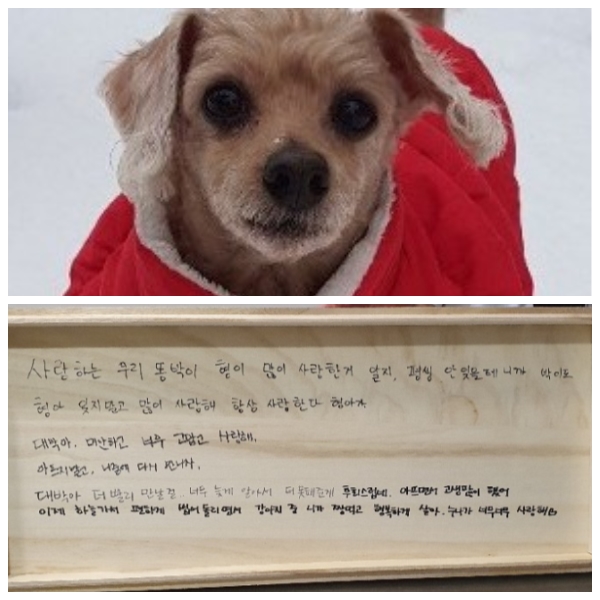 사랑하는 우리 똥박이 형이 많이 사랑한거 알지, 평생 안잊을께 니까 박이도
형아 잊지말고 많이 사랑해 항상 사랑한다 형아가
대박아. 미안하고 너무 고맙고 사랑해.
아프지말고, 나중에 다시 만나자.
대박아 더 빨리 만날걸. 너무 늦게 알아서 더 못해준게 후회스럽네. 아프면서 고생많이 했어
이제 하늘가서 편하게 뛰어놀면서 강아지 중 니가 짱먹고 행복하게 살아. 누나가 너무너무 사랑해